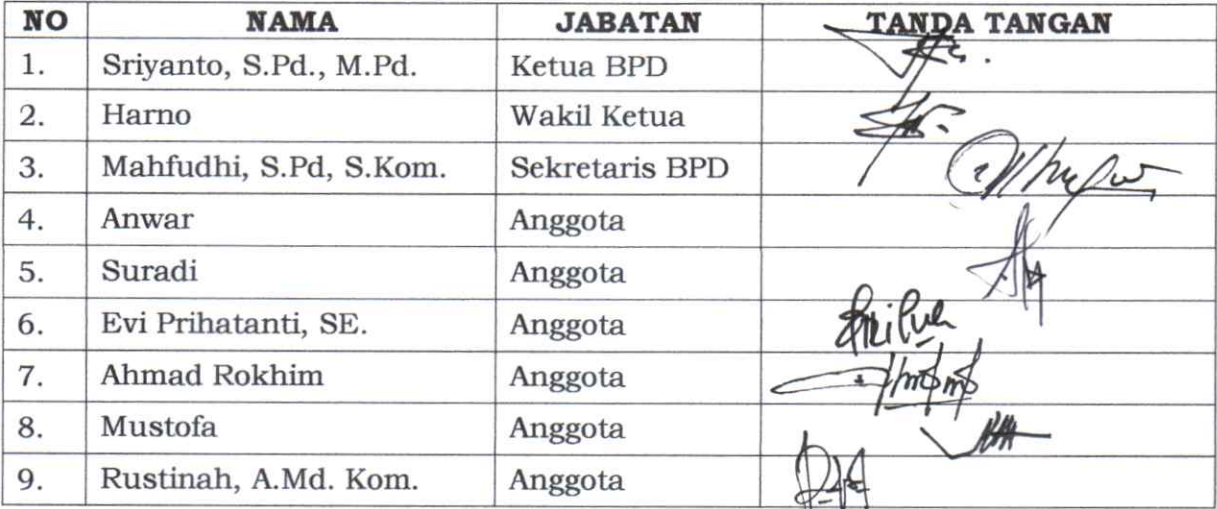 NO NAMA JABATAN TANDA TANGAN
1. Sriyanto, S.Pd., M.Pd. Ketua BPD
2. Harno Wakil Ketua
3. Mahfudhi, S.Pd, S.Kom. Sekretaris BPD
4. Anwar Anggota
5. Suradi Anggota
6. Evi Prihatanti, SE. Anggota
7. Ahmad Rokhim Anggota
8. Mustofa Anggota
9. Rustinah, A.Md. Kom. Anggota